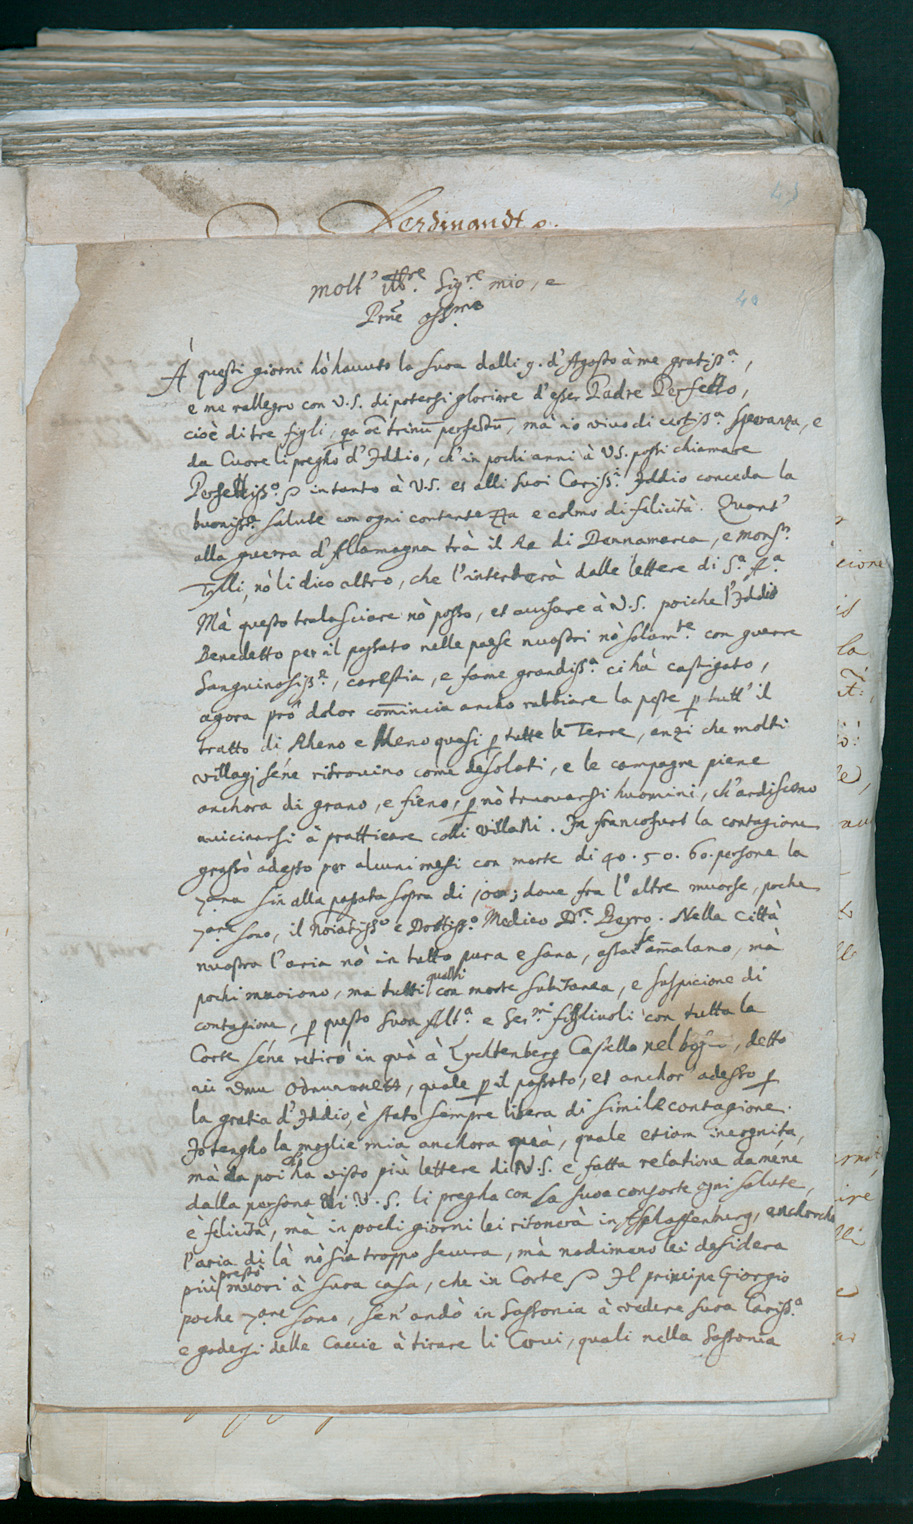 49
Ferdinandt
40
Molt' Ill.re Sig.re mio, e
Prne oss.mo
À questi giorni hò havuto la sua dalli 9. d'Agosto à me gratiss.a,
e me rallegro con V.S. di potersi gloriare d'esser Padre Perfetto,
cioè di tre figli, qa oe trinũ perfectũ, mà nò vivo di certiss.a speranza, e
da Cuore li pregho d'Iddio, ch'in pochi anni à V.S. possi chiamare
Perfettiss.o intanto à V.S. et alli suoi Cariss.i Iddio conceda la
buoniss.a salute con ogni contentezza e colmo di felicità. Quant'
alla guerra d'Allamagna trà il Re di Dennamarca, e mons.r
Tylli, nò li dico altro, che l'intenderà dalle lettere di S.a A.a
Mà questo tralasciare nò posso, et avisare à V.S. poiche l'Iddio
Benedetto per il passato nelle paese nuostri nò solam.te con guerre
sanguinosiss.e, carestia, e fame grandiss.a ci hà castigato,
agora prò dolor comincia ancho rabbiare la peste p tutt' il
tratto di Rheno e Meno quasi p tutte le Terre, anzi che molti
villagi sene ritrovino come desolati, e le campagne piene
anchora di grano, e fieno, p nò truovarsi huomini, ch'ardiscono
avicinarsi à pratticare colli villani. In francofurt la contagione
grassò adesso per alcuni mesi con morte di 40. 50. 60. persone la
7ana sin alla passata sopra di 100; dove fra l'altre muorse, poche
7ane sono, il Notatiss.o e Dottiss.o Medico D.r Beyro. Nella Città
nuostra l'aria nò in tutto pura e sana, assai se amalano, mà
pochi muoiono, ma tutti quasi con morte subitanea, e suspicione di
contagione, p questo Suoa Alt.a e Ser.mi figlivoli con tutta la
Corte sene retirò in quà à Lychtenberg Castello nel, detto
, quale p il passato, et anchor' adesso p
la gratia d'Iddio, è stato sempre libera di simile contagione.
Io tengho la moglie mia anchora quà, quale etiam incognita,
mà da poi ch'ha visto più lettere di V.S. e fatta relatione da mene
dalla persona di V.S. li pregha con la suoa consorte ogni salute,
è felicità, mà in pochi giorni lei ritonerà in Asslaffenburg, anchorche
l'aria di là nò sia troppo secura, mà nodimeno lei desidera
più prestò muori à sua casa, che in Corte Il principe Giorgio
poche 7ane sono, sen' andò in Sassonia à vedere suoa Cariss.a
e godersi delle Caccie à tirare li Cervi, quali nella Sassonia